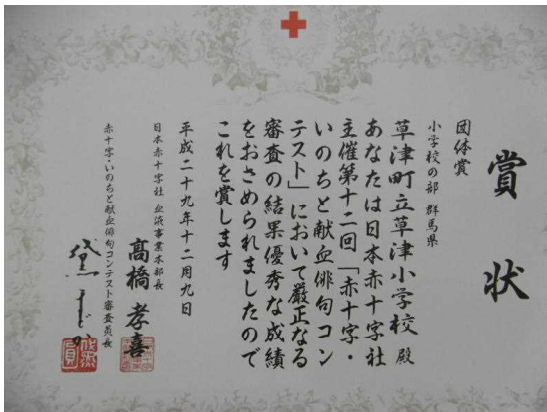 賞状
団体賞
小学校の部 群馬県
草津町立草津小学校 殿
あなたは日本赤十字社
主催第十二回「赤十字・
いのちと献血俳句コン
テスト」において厳正なる
審査の結果優秀な成績
をおさめられましたので
これを賞します
平成二十九年十二月九日
日本赤十字社 血液事業本部長
高橋孝喜
赤十字・いのちと献血俳句コンテスト審査員長
黛まどか